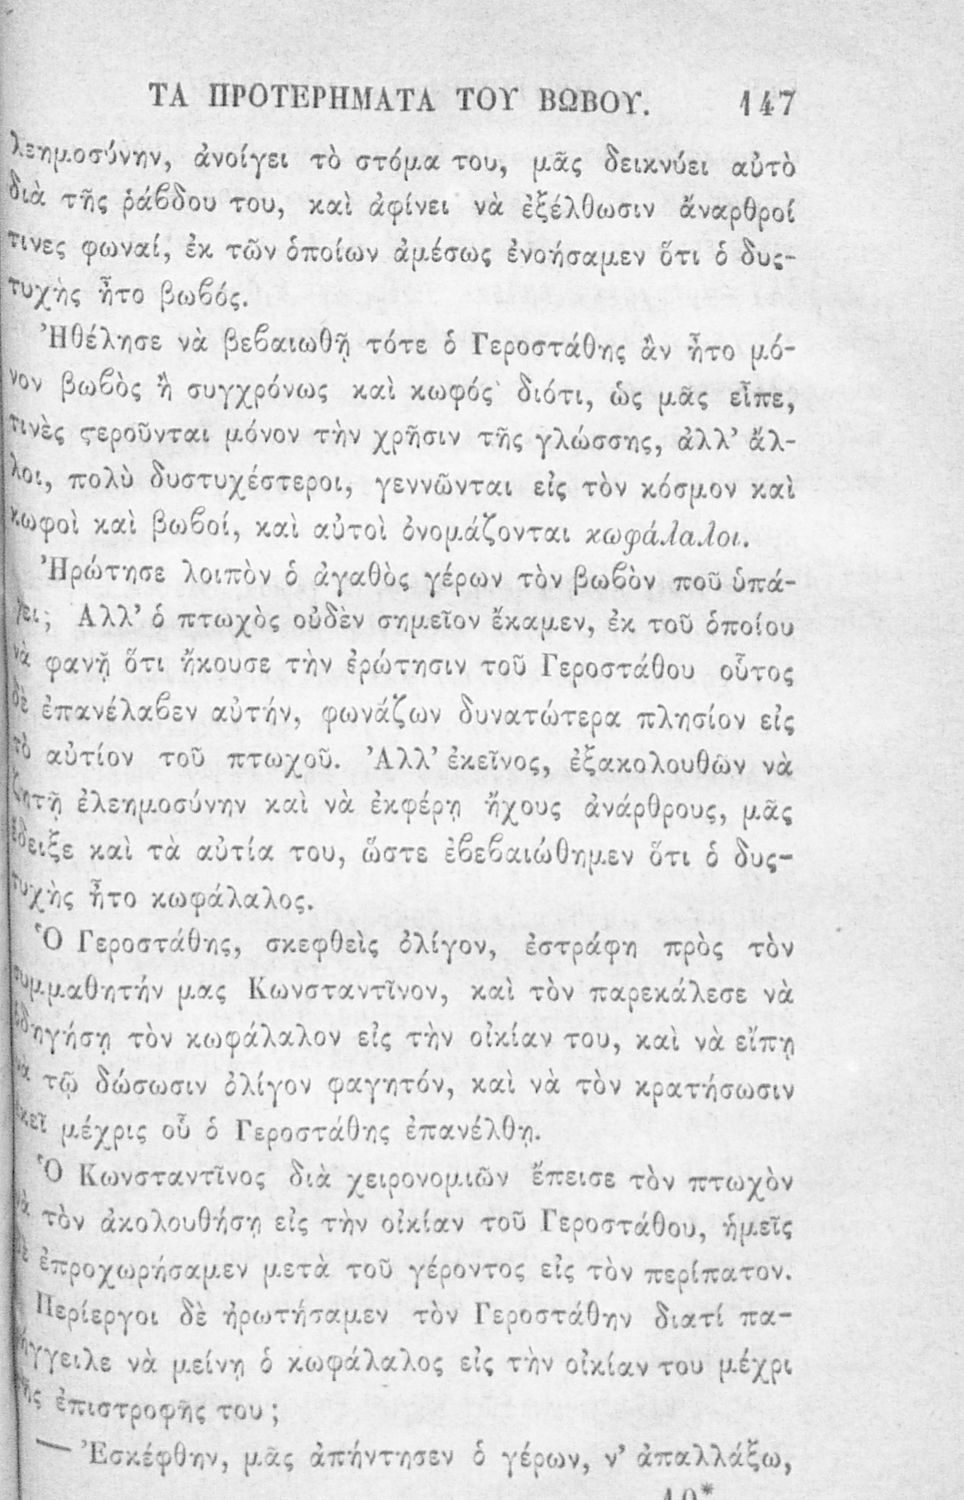 ΤΑ ΠΡΟΤΕΡΗΜΑΤΑ ΤΟΥ ΒΩΒΟΥ. 147
λεημοσύνην, ἀνοίγει τὸ στόμα του, μᾶς δεικνύει αὐτὸ
διὰ τῆς ῥάϐδου του, καὶ ἀφίνει νὰ ἐξέλθωσιν ἄναρθροί
τινες φωναί, ἐκ τῶν ὁποίων ἀμέσως ἐνοήσαμεν ὅτι ὁ δυς-
τυχὴς ἦτο βωϐός.
Ἠθέλησε νὰ βεϐαιωθῇ τότε ὁ Γεροστάθης ἂν ἦτο μό-
νον βωϐὸς ἢ συγχρόνως καὶ κωφός· διότι, ὡς μᾶς εἶπε,
τινὲς ϛεροῦνται μόνον τὴν χρῆσιν τῆς γλώσσης, ἀλλ’ ἄλ-
λοι, πολὺ δυστυχέστεροι, γεννῶνται εἰς τὸν κόσμον καὶ
κωφοὶ καὶ βωϐοί, καὶ αὐτοὶ ὀνομάζονται κωφάλαλοι.
Ἠρώτησε λοιπὸν ὁ ἀγαθὸς γέρων τὸν βωϐὸν ποῦ ὑπά-
γει; Ἀλλ’ ὁ πτωχὸς οὐδὲν σημεῖον ἔκαμεν, ἐκ τοῦ ὁποίου
νὰ φανῇ ὅτι ἤκουσε τὴν ἐρώτησιν τοῦ Γεροστάθου οὗτος
δὲ ἐπανέλαϐεν αὐτήν, φωνάζων δυνατώτερα πλησίον εἰς
τὸ αὐτίον τοῦ πτωχοῦ. Ἀλλ’ ἐκεῖνος, ἐξακολουθῶν νὰ
ζητῇ ἐλεημοσύνην καὶ νὰ ἐκφέρῃ ἤχους ἀνάρθρους, μᾶς
ἔδειξε καὶ τὰ αὐτία του, ὥστε ἐϐεϐαιώθημεν ὅτι ὁ δυς-
τυχὴς ἦτο κωφάλαλος.
Ὁ Γεροστάθης, σκεφθεὶς ὀλίγον, ἐστράφη πρὸς τὸν
συμμαθητήν μας Κωνσταντῖνον, καὶ τὸν παρεκάλεσε νὰ
ὁδηγήσῃ τὸν κωφάλαλον εἰς τὴν οἰκίαν του, καὶ νὰ εἴπῃ
νὰ τῷ δώσωσιν ὀλίγον φαγητόν, καὶ νὰ τὸν κρατήσωσιν
ἐκεῖ μέχρις οὗ ὁ Γεροστάθης ἐπανέλθῃ.
Ὁ Κωνσταντῖνος διὰ χειρονομιῶν ἔπεισε τὸν πτωχὸν
νὰ τὸν ἀκολουθήσῃ εἰς τὴν οἰκίαν τοῦ Γεροστάθου, ἡμεῖς
δὲ ἐπροχωρήσαμεν μετὰ τοῦ γέροντος εἰς τὸν περίπατον.
Περίεργοι δὲ ἠρωτήσαμεν τὸν Γεροστάθην διατί πα-
ρήγγειλε νὰ μείνῃ ὁ κωφάλαλος εἰς τὴν οἰκίαν του μέχρι
τῆς ἐπιστροφῆς του;
— Ἐσκέφθην, μᾶς ἀπήντησεν ὁ γέρων, ν’ ἀπαλλάξω,
10*